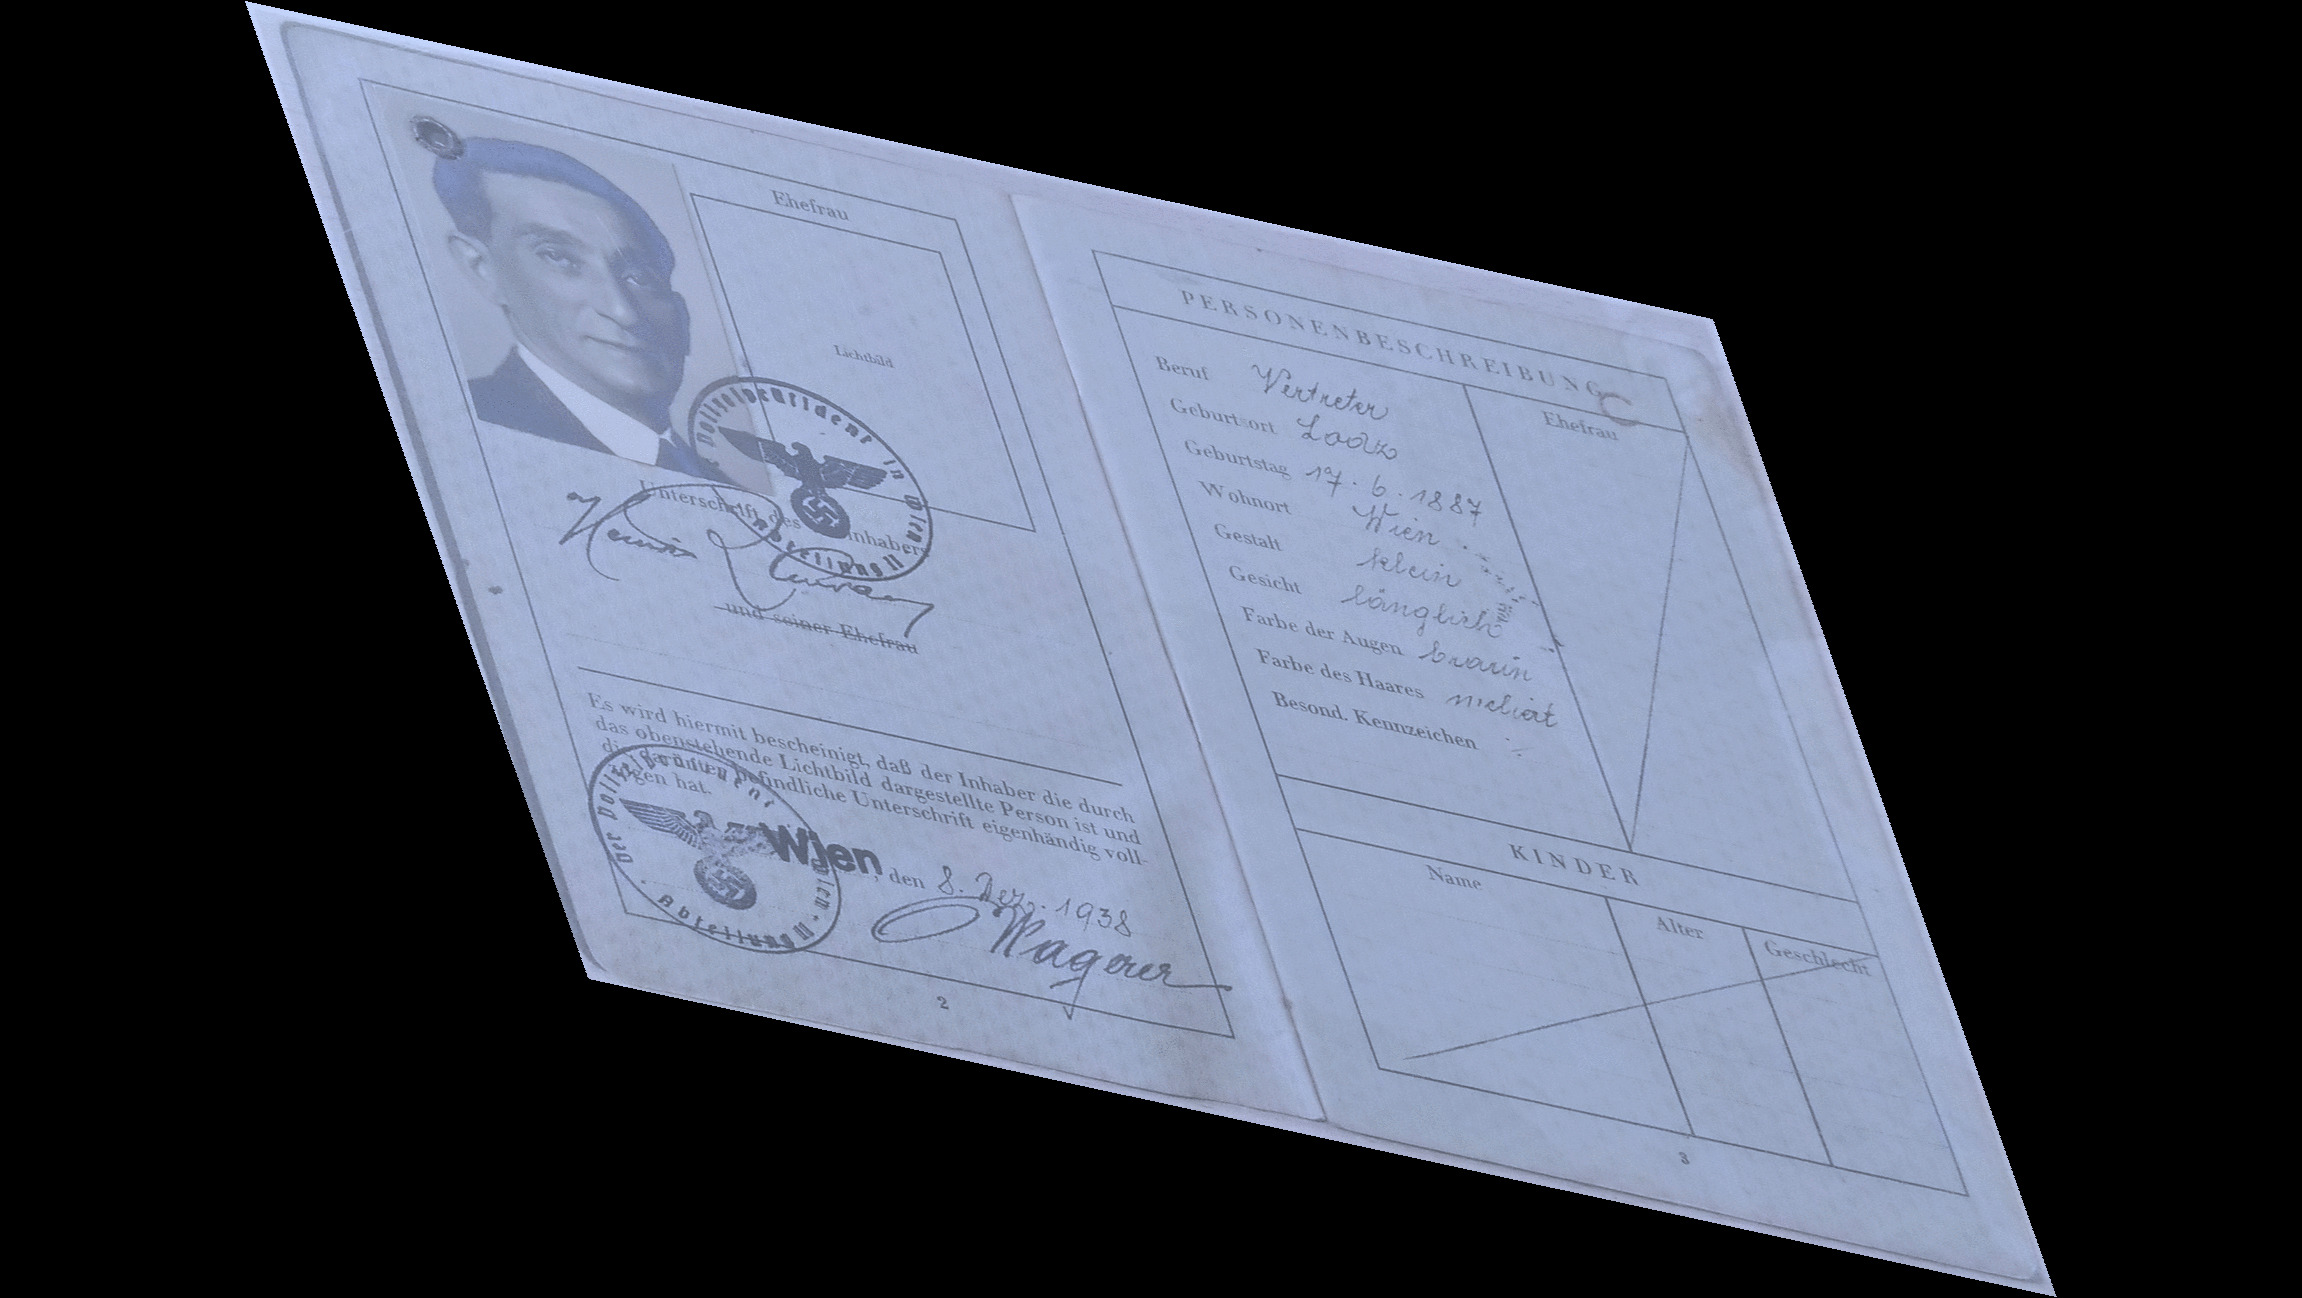 Ehefrau
Lichtbild
Der Polizeipräsident in Wien
Abteilung II
Unterschrift des Inhabers
und seiner Ehefrau
Es wird hiermit bescheinigt, daß der Inhaber die durch
das obenstehende Lichtbild dargestellte Person ist und
die darunter befindliche Unterschrift eigenhändig voll-
zogen hat.
Der Polizeipräsident in Wien
Abteilung II
Wien, den 8. Dez. 1938
Wagner
2
PERSONENBESCHREIBUNG
Ehefrau
Beruf Vertreter
Geburtsort Lodz
Geburtstag 17. 6. 1887
Wohnort Wien
Gestalt klein
Gesicht länglich
Farbe der Augen braun
Farbe des Haares meliert
Besond. Kennzeichen
KINDER
Name Alter Geschlecht
3